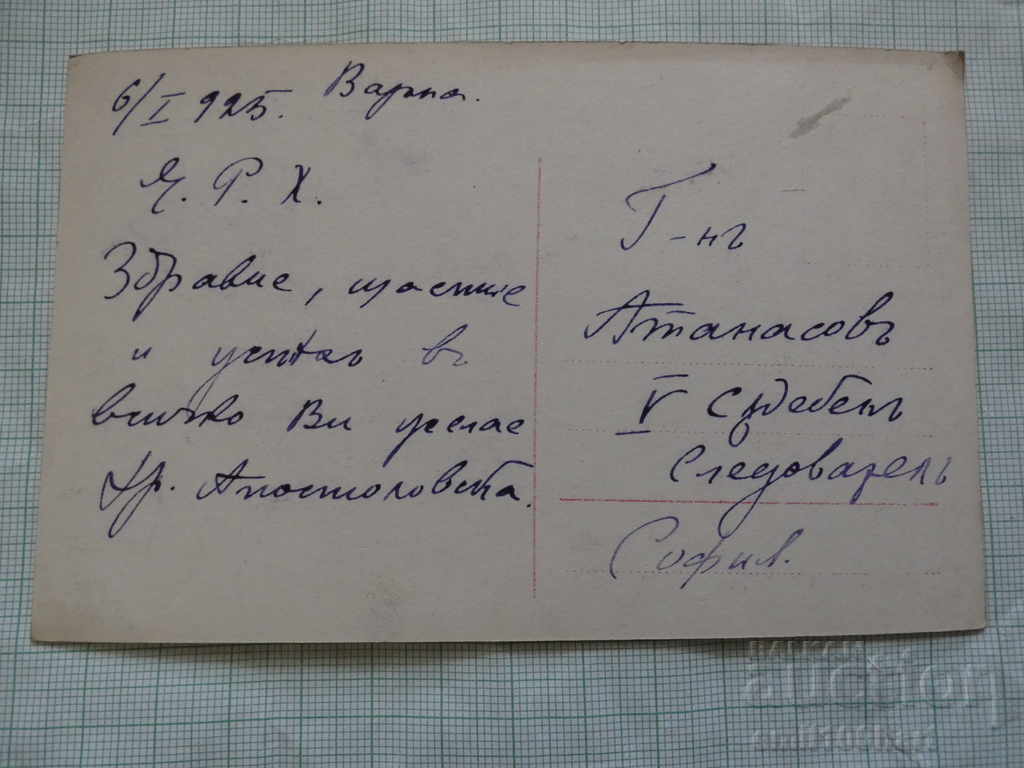 6/I 925. Варна.
Ч. Р. Х.
Здравие, щастие
и успѣхъ въ
всичко Ви желае
Хр. Апостоловъ
Г-нъ
Атанасовъ
V Сѫдебенъ
Следователь
София.
BALKAN
auction